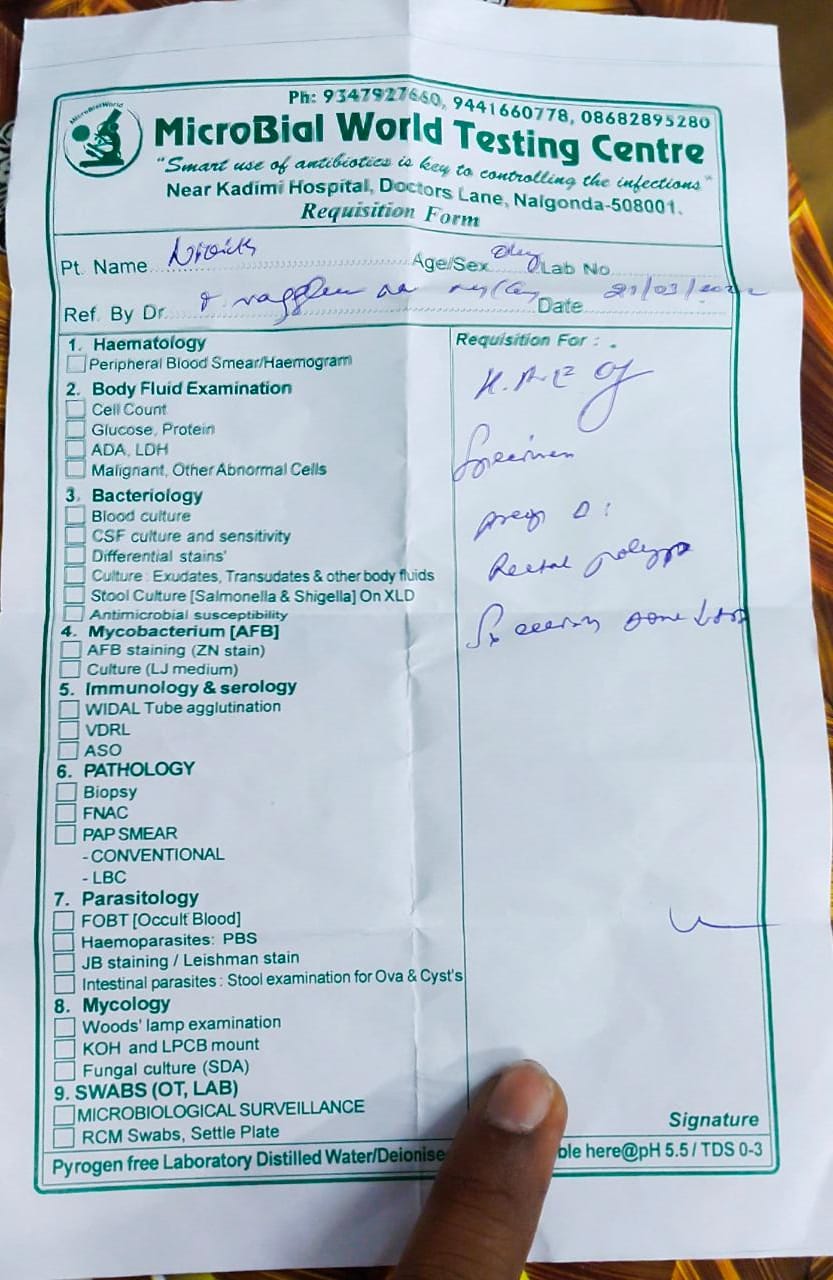 MicroBialWorld
Ph: 9347927660, 9441660778, 08682895280
MicroBial World Testing Centre
"Smart use of antibiotics is key to controlling the infections"
Near Kadimi Hospital, Doctors Lane, Nalgonda-508001.
Requisition Form
Pt. Name Age/Sex Lab No
Ref. By Dr. Date 21/03/2022
1. Haematology
Peripheral Blood Smear/Haemogram
2. Body Fluid Examination
Cell Count
Glucose, Protein
ADA, LDH
Malignant, Other Abnormal Cells
3. Bacteriology
Blood culture
CSF culture and sensitivity
Differential stains'
Culture : Exudates, Transudates & other body fluids
Stool Culture [Salmonella & Shigella] On XLD
Antimicrobial susceptibility
4. Mycobacterium [AFB]
AFB staining (ZN stain)
Culture (LJ medium)
5. Immunology & serology
WIDAL Tube agglutination
VDRL
ASO
6. PATHOLOGY
Biopsy
FNAC
PAP SMEAR
- CONVENTIONAL
- LBC
7. Parasitology
FOBT [Occult Blood]
Haemoparasites: PBS
JB staining / Leishman stain
Intestinal parasites : Stool examination for Ova & Cyst's
8. Mycology
Woods' lamp examination
KOH and LPCB mount
Fungal culture (SDA)
9. SWABS (OT, LAB)
MICROBIOLOGICAL SURVEILLANCE
RCM Swabs, Settle Plate
Requisition For : .
H.P.E of
Specimen
D:
Rectal polyp
Signature
Pyrogen free Laboratory Distilled Water/Deionise ble here@pH 5.5 / TDS 0-3